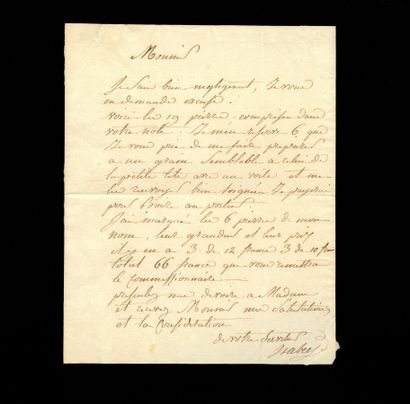 Monsieur
Je suis bien negligent, je vous
en demande excuse.
voici les 19 pierres, comprises dans
votre note. Je me reserve 6 que
je vous prie de me faire preparer
a un grain semblable a celui de
la petite tete avec un voile et me
les envoyer bien soignée
pour
J'ai marqué les 6 pierres de mon
nom, leur grandeur et leur prix
il y en a 3 de 12 francs 3 de 10 francs
total 66 francs que vous remettra
le commissionnaire —
presentez mes devoirs à Madame
et Monsieur mes salutations
et la Consideration
de votre Serviteur
Isabey